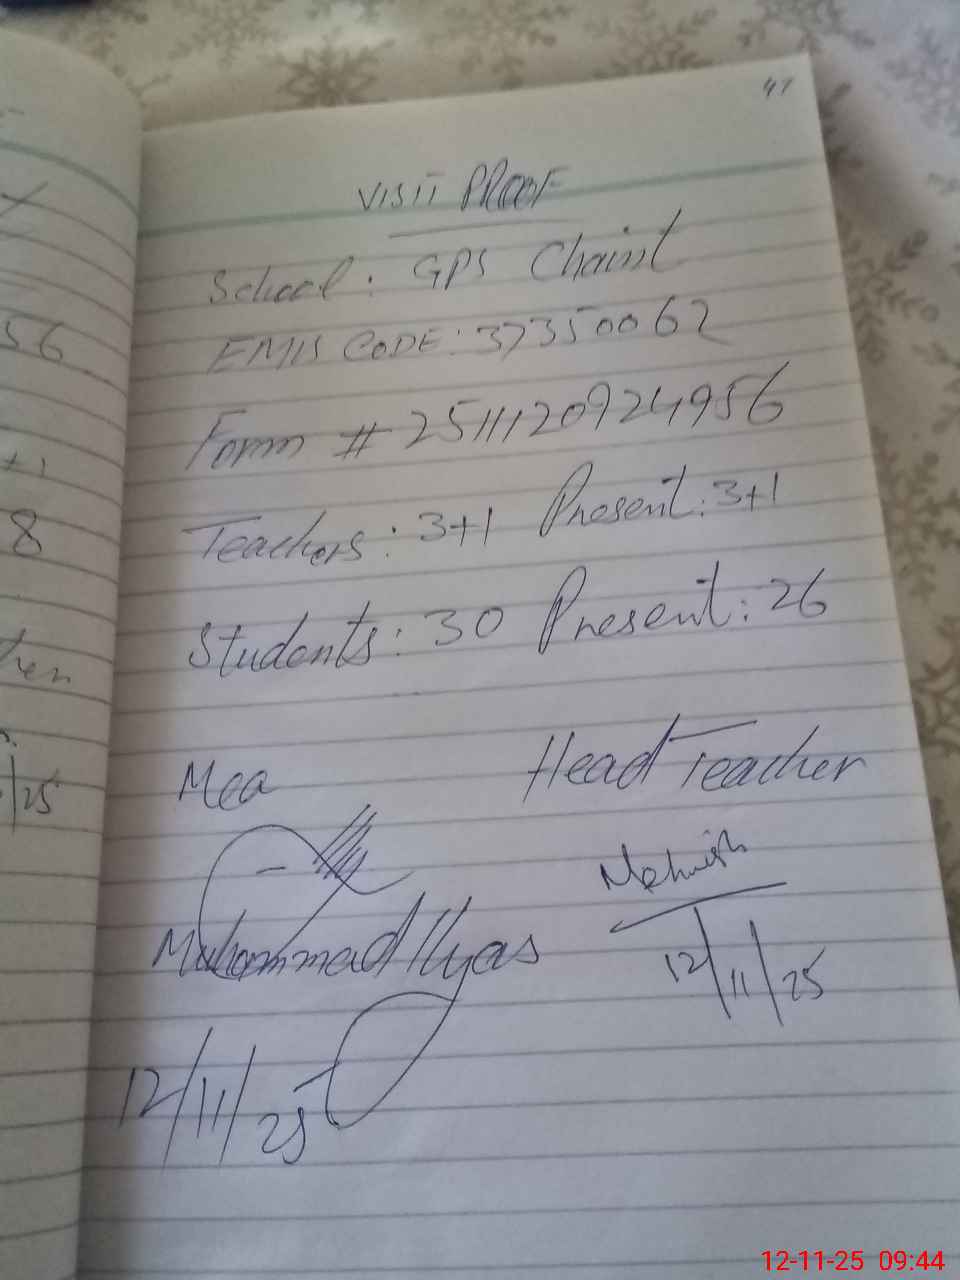 47
VISIT PROOF
School: GPS Chaint
EMIS CODE: 37350062
Form # 251112092 4956
Teachers: 3+1 Present: 3+1
Students: 30 Present: 26
Mea Head Teacher
Mehwish
Muhammad Ilyas
12/11/25
12/11/25
56
+1
8
her
/25
12-11-25 09:44